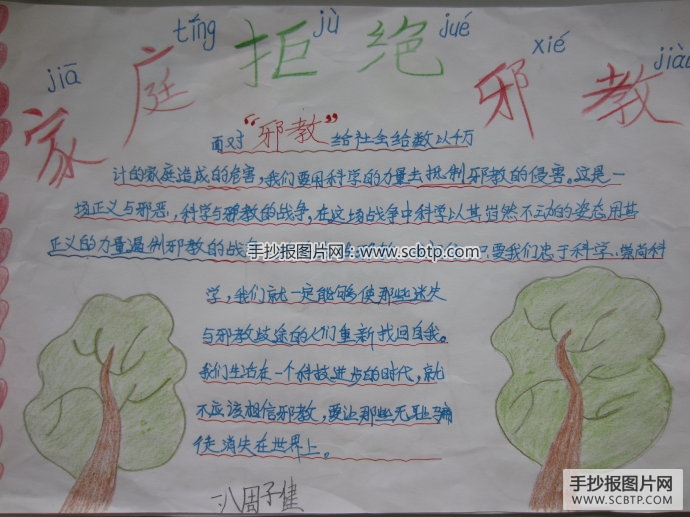 jiā tíng jù jué xié jiào
家庭拒绝邪教
面对“邪教”给社会给数以千万
计的家庭造成的危害,我们要用科学的力量去抵制邪教的侵害。这是一
场正义与邪恶,科学与邪教的战争,在这场战争中科学以其岿然不动的姿态用其
正义的力量遏制邪教的战 只要我们忠于科学、崇尚科
手抄报图片网-www.scbtp.com
学,我们就一定能够使那些迷失
与邪教歧途的人们重新找回自我。
我们生活在一个科技进步的时代,就
不应该相信邪教,要让那些无耻骗
徒消失在世界上。
一八周子健
手抄报图片网
WWW.SCBTP.COM